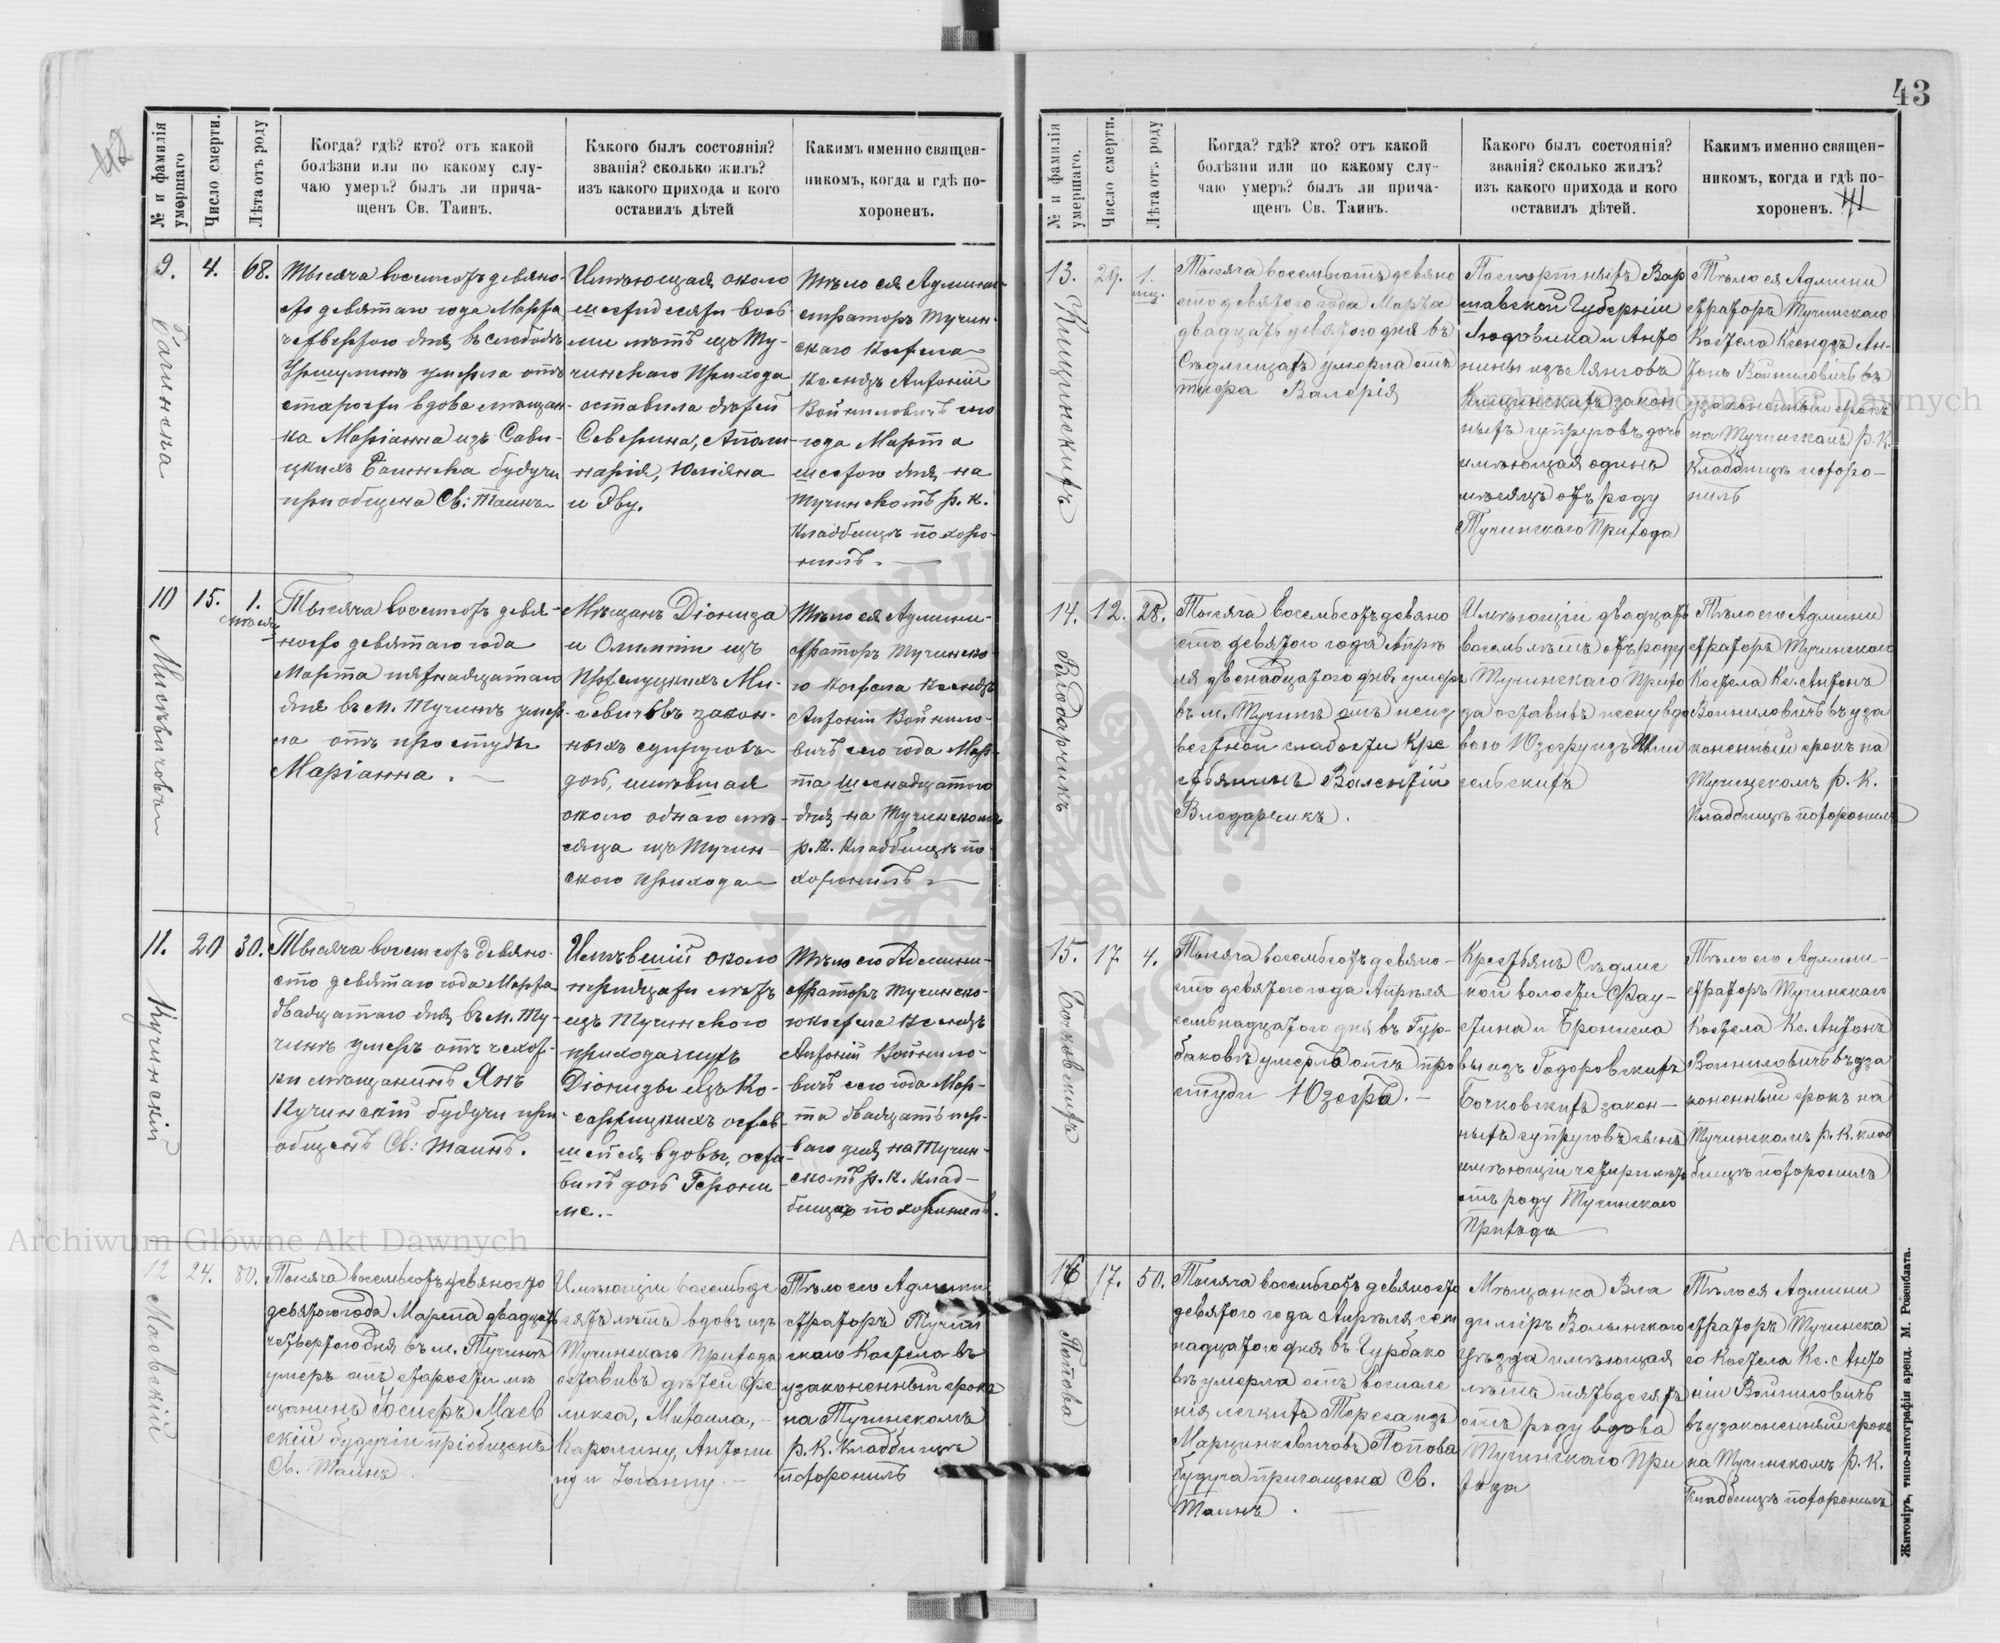 42
№ и фамилія умершаго
Число смерти.
Лѣта отъ роду
Когда? гдѣ? кто? отъ какой
болѣзни или по какому слу-
чаю умеръ? былъ ли прича-
щенъ Св. Таинъ.
Какого былъ состоянія?
званія? сколько жилъ?
изъ какого прихода и кого
оставилъ дѣтей
Какимъ именно священ-
никомъ, когда и гдѣ по-
хороненъ.
9.
4.
68.
Тысяча восемсотъ девяно-
сто девятаго года Марта
четвертого дня въ слободѣ
умерла отъ
старости вдова мѣщан-
ка Маріанна изъ Сави-
цкихъ Багинска будучи
приобщена Св: Таинъ
Имѣющая около
шестидесяти вось-
ми лѣтъ изъ Ту-
чинскаго Прихода
оставила дѣтей
Северина, Аполи-
нарія, Юліяна
и Эву.
Тѣло ея Админи-
страторъ Тучин-
скаго Костела
Ксендзъ Антоній
Войниловичъ сего
года Марта
шестого дня на
Тучинскомъ р. к.
Кладбищѣ похоро-
нилъ.
10
15.
1.
мѣсяц
Тысяча восемсотъ девя-
носто девятаго года
Марта пятнадцатаго
дня въ м. Тучинѣ умер-
ла отъ простуды
Маріанна.
Мѣщанъ Діониза
и Олимпіи изъ
Ми-
севичовъ закон-
ныхъ супруговъ
дочь, имѣвшая
около одного мѣ-
сяца изъ Тучин-
ского Прихода
Тѣло ея Админи-
страторъ Тучинско-
го Костела Ксендзъ
Антоній Войнило-
вичъ сего года Мар-
та шеснадцатого
дня на Тучинскомъ
р. к. Кладбищѣ по-
хоронилъ
11.
20
30.
Кучинскій
Тысяча восемсотъ девяно-
сто девятаго года Марта
двадцатаго дня въ м. Ту-
чинѣ умеръ отъ чехот-
ки мѣщанинъ Янъ
Кучинскій будучи при-
общенъ Св: Таинъ.
Имѣвшій около
тридцати лѣтъ
изъ Тучинского
прихода мужъ
Діонизы изъ Ко-
сарницкихъ остав-
шейся вдовы, оста-
вилъ дочь Герони-
ме.
Тѣло его Админи-
страторъ Тучинско-
го Костела Ксендзъ
Антоній Войнило-
вичъ сего года Мар-
та двадцать пер-
ваго дня на Тучин-
скомъ р. к. Клад-
бищѣ похоронилъ.
12
24.
80.
Маевскій
Тысяча восемьсотъ девяносто
девятого года Марта двадцать
четвертого дня въ м. Тучинѣ
умеръ отъ старости мѣ
щанинъ Іосифъ Маев
скій будучи пріобщенъ
Св. Таинъ
Имѣющій восемьде
сятъ лѣтъ вдовъ изъ
Тучинскаго Прихода
оставивъ дѣтей Фе
ликса, Михаила,
Каролину, Антони
ну и Іоанну.
Тѣло его Админи
страторъ Тучин
скаго Костела въ
узаконенный срокъ
на Тучинскомъ
р. К. Кладбищѣ
похоронилъ
43
№ и фамилія умершаго.
Число смерти.
Лѣта отъ роду
Когда? гдѣ? кто? отъ какой
болѣзни или по какому слу-
чаю умеръ? былъ ли прича-
щенъ Св. Таинъ.
Какого былъ состоянія?
званія? сколько жилъ?
изъ какого прихода и кого
оставилъ дѣтей.
Какимъ именно священ-
никомъ, когда и гдѣ по-
хороненъ.
13.
29.
1.
мѣс.
Клицинскихъ
Тысяча восемьсотъ девяно
сто девятого года Марта
двадцать девятого дня въ
Сѣдлищахъ умерла отъ
тифа Валерія
Паспортныхъ Вар
шавской Губерніи
Людовика и Анто
нины изъ Лянговъ
Клицинскихъ закон
ныхъ супруговъ дочь
имѣющая одинъ
мѣсяцъ отъ роду
Тучинскаго Прихода
Тѣло ея Админи
страторъ Тучинскаго
Костела Ксендзъ Ан-
тонъ Войниловичъ въ
узаконенный срокъ
на Тучинскомъ р. К.
Кладбищѣ похоро-
нилъ
14.
12.
28.
Влодарчикъ
Тысяча восемьсотъ девяно
сто девятого года Апрѣ
ля двенадцатого дня умеръ
въ м. Тучинѣ отъ неиз
вестной слабости Кре
стьянинъ Валентій
Влодарчикъ.
Имѣющій двадцать
восемь лѣтъ отъ роду
Тучинскаго Прихо
да оставивъ жену вдо
вою Юзефу изъ Шми
гельскихъ
Тѣло его Админи
страторъ Тучинскаго
Костела Кс. Антонъ
Войниловичъ въ уза
коненный срокъ на
Тучинскомъ р. К.
Кладбищѣ похоронилъ
15.
17
4.
Бочковскихъ
Тысяча восемьсотъ девяно-
сто девятого года Апрѣля
семьнадцатого дня въ Гур-
баковѣ умерла отъ про
студи Юзефа.
Крестьянъ Сѣдлис
кой волости Фау-
стина и Брониславы
изъ Годоровскихъ
Бочковскихъ закон-
ныхъ супруговъ сынъ
имѣющій четыри лѣтъ
отъ роду Тучинскаго
Прихода
Тѣло его Админи-
страторъ Тучинскаго
Костела Кс. Антонъ
Войниловичъ въ уза
коненный срокъ на
Тучинскомъ р. К. клад
бищѣ похоронилъ
16
17.
50.
Попова
Тысяча восемьсотъ девяносто
девятого года Апрѣля сем
надцатого дня въ Гурбако
вѣ умерла отъ воспале
нія легкихъ Тереса изъ
Марцинкевичовъ Попова
будуча причащена Св.
Таинъ.
Мѣщанка Вла
диміръ Волынскаго
уѣзда имѣющая
лѣтъ пятьдесятъ
отъ роду вдова
Тучинскаго При
хода
Тѣло ея Админи
страторъ Тучинска
го Костела Кс. Анто
ній Войниловичъ
въ узаконенный срокъ
на Тучинскомъ р. К.
Кладбищѣ похоронилъ
Житоміръ, типо-литографія аренд. М. Розенблата.
Archiwum Główne Akt Dawnych
Archiwum Główne Akt Dawnych